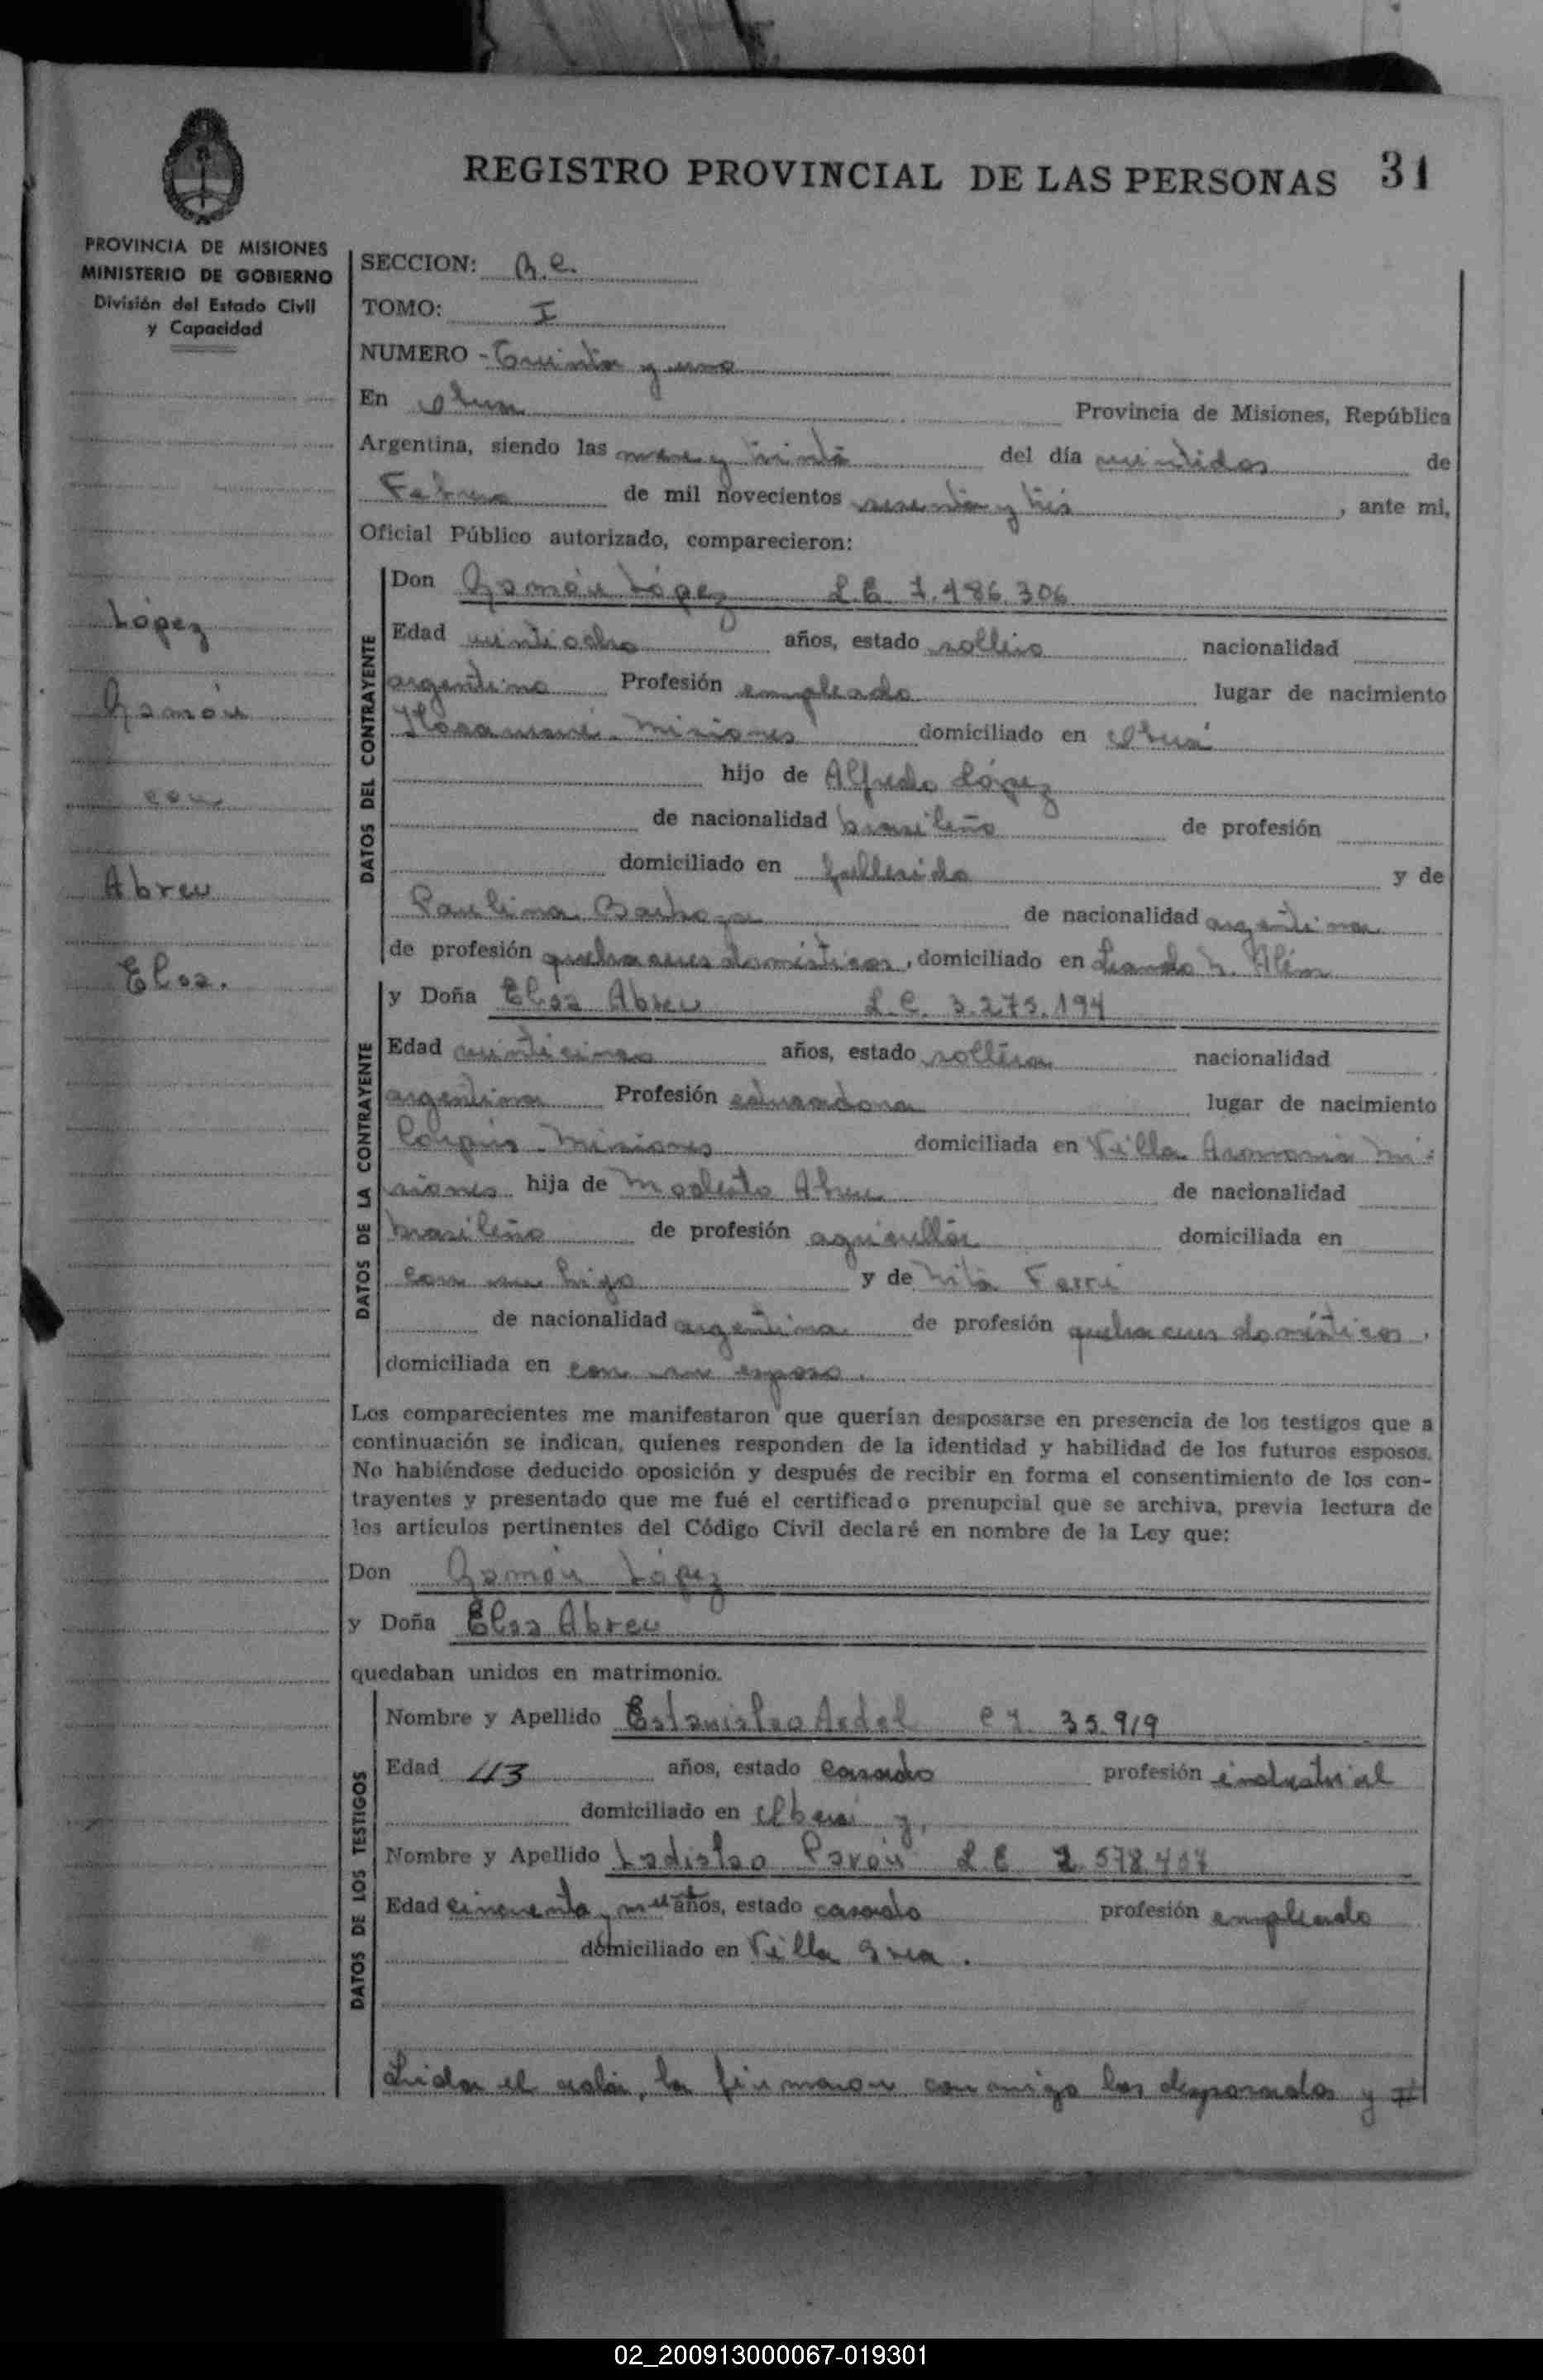 REGISTRO PROVINCIAL DE LAS PERSONAS 31
PROVINCIA DE MISIONES
MINISTERIO DE GOBIERNO
División del Estado Civil
y Capacidad
López
Ramón
con
Abreu
Elsa.
SECCION: R.C.
TOMO: I
NUMERO - Treinta y uno
En Obera Provincia de Misiones, República
Argentina, siendo las nueve y treinta del día veintidos de
Febrero de mil novecientos sesenta y tres, ante mi,
Oficial Público autorizado, comparecieron:
DATOS DEL CONTRAYENTE
Don Ramón López L.E 7.486.306
Edad veintiocho años, estado soltero nacionalidad
argentino Profesión empleado lugar de nacimiento
Misiones domiciliado en Oberá
hijo de Alfredo López
de nacionalidad brasileño de profesión
domiciliado en fallecido y de
Paulina de nacionalidad argentina
de profesión quehaceres domésticos, domiciliado en Leandro N. Além
DATOS DE LA CONTRAYENTE
y Doña Elsa Abreu L.C. 3.275.194
Edad veinticinco años, estado soltera nacionalidad
argentina Profesión educadora lugar de nacimiento
Cerpús - Misiones domiciliada en Villa Armonia Mi-
siones hija de Modesto Abreu de nacionalidad
brasileño de profesión agricultor domiciliada en
con su hija y de Ferri
de nacionalidad argentina de profesión quehaceres domésticos,
domiciliada en con su esposo.
Los comparecientes me manifestaron que querían desposarse en presencia de los testigos que a
continuación se indican, quienes responden de la identidad y habilidad de los futuros esposos.
No habiéndose deducido oposición y después de recibir en forma el consentimiento de los con-
trayentes y presentado que me fué el certificado prenupcial que se archiva, previa lectura de
los artículos pertinentes del Código Civil declaré en nombre de la Ley que:
Don Ramón López
y Doña Elsa Abreu
quedaban unidos en matrimonio.
DATOS DE LOS TESTIGOS
Nombre y Apellido Estanislao Ardel C I. 35.919
Edad 43 años, estado casado profesión industrial
domiciliado en Oberá y,
Nombre y Apellido Ladislao Pavón L E 2.578.457
Edad cincuenta y años, estado casado profesión empleado
domiciliado en Villa
Leida el acta, la firmaron conmigo los desposados y
02_200913000067-019301